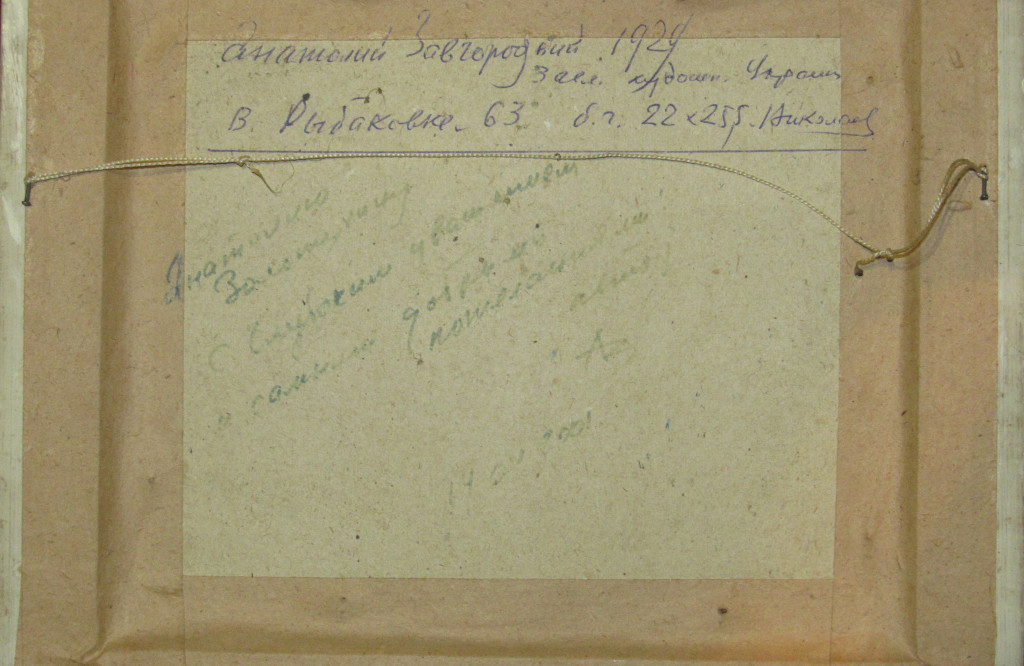 Анатолий Завгородний 1929
Засл. худошн. Украины
в. Рыбаковке. 63 б.г. 22x25,5. Николаев
Анатолию
с глубоким уважением
и самыми добрыми
пожеланиями
автор
19 01 2001